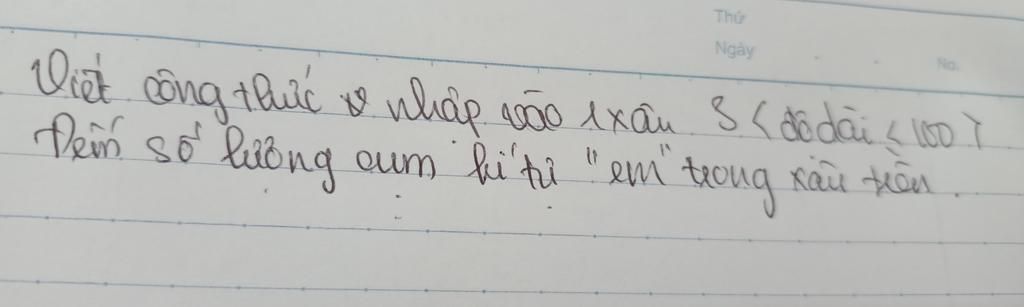 Thứ
Ngày
No.
Viết công thức nhập vào 1 xâu S (độ dài ≤ 100)
Đếm số lượng cụm kí tự "em" trong xâu trên.